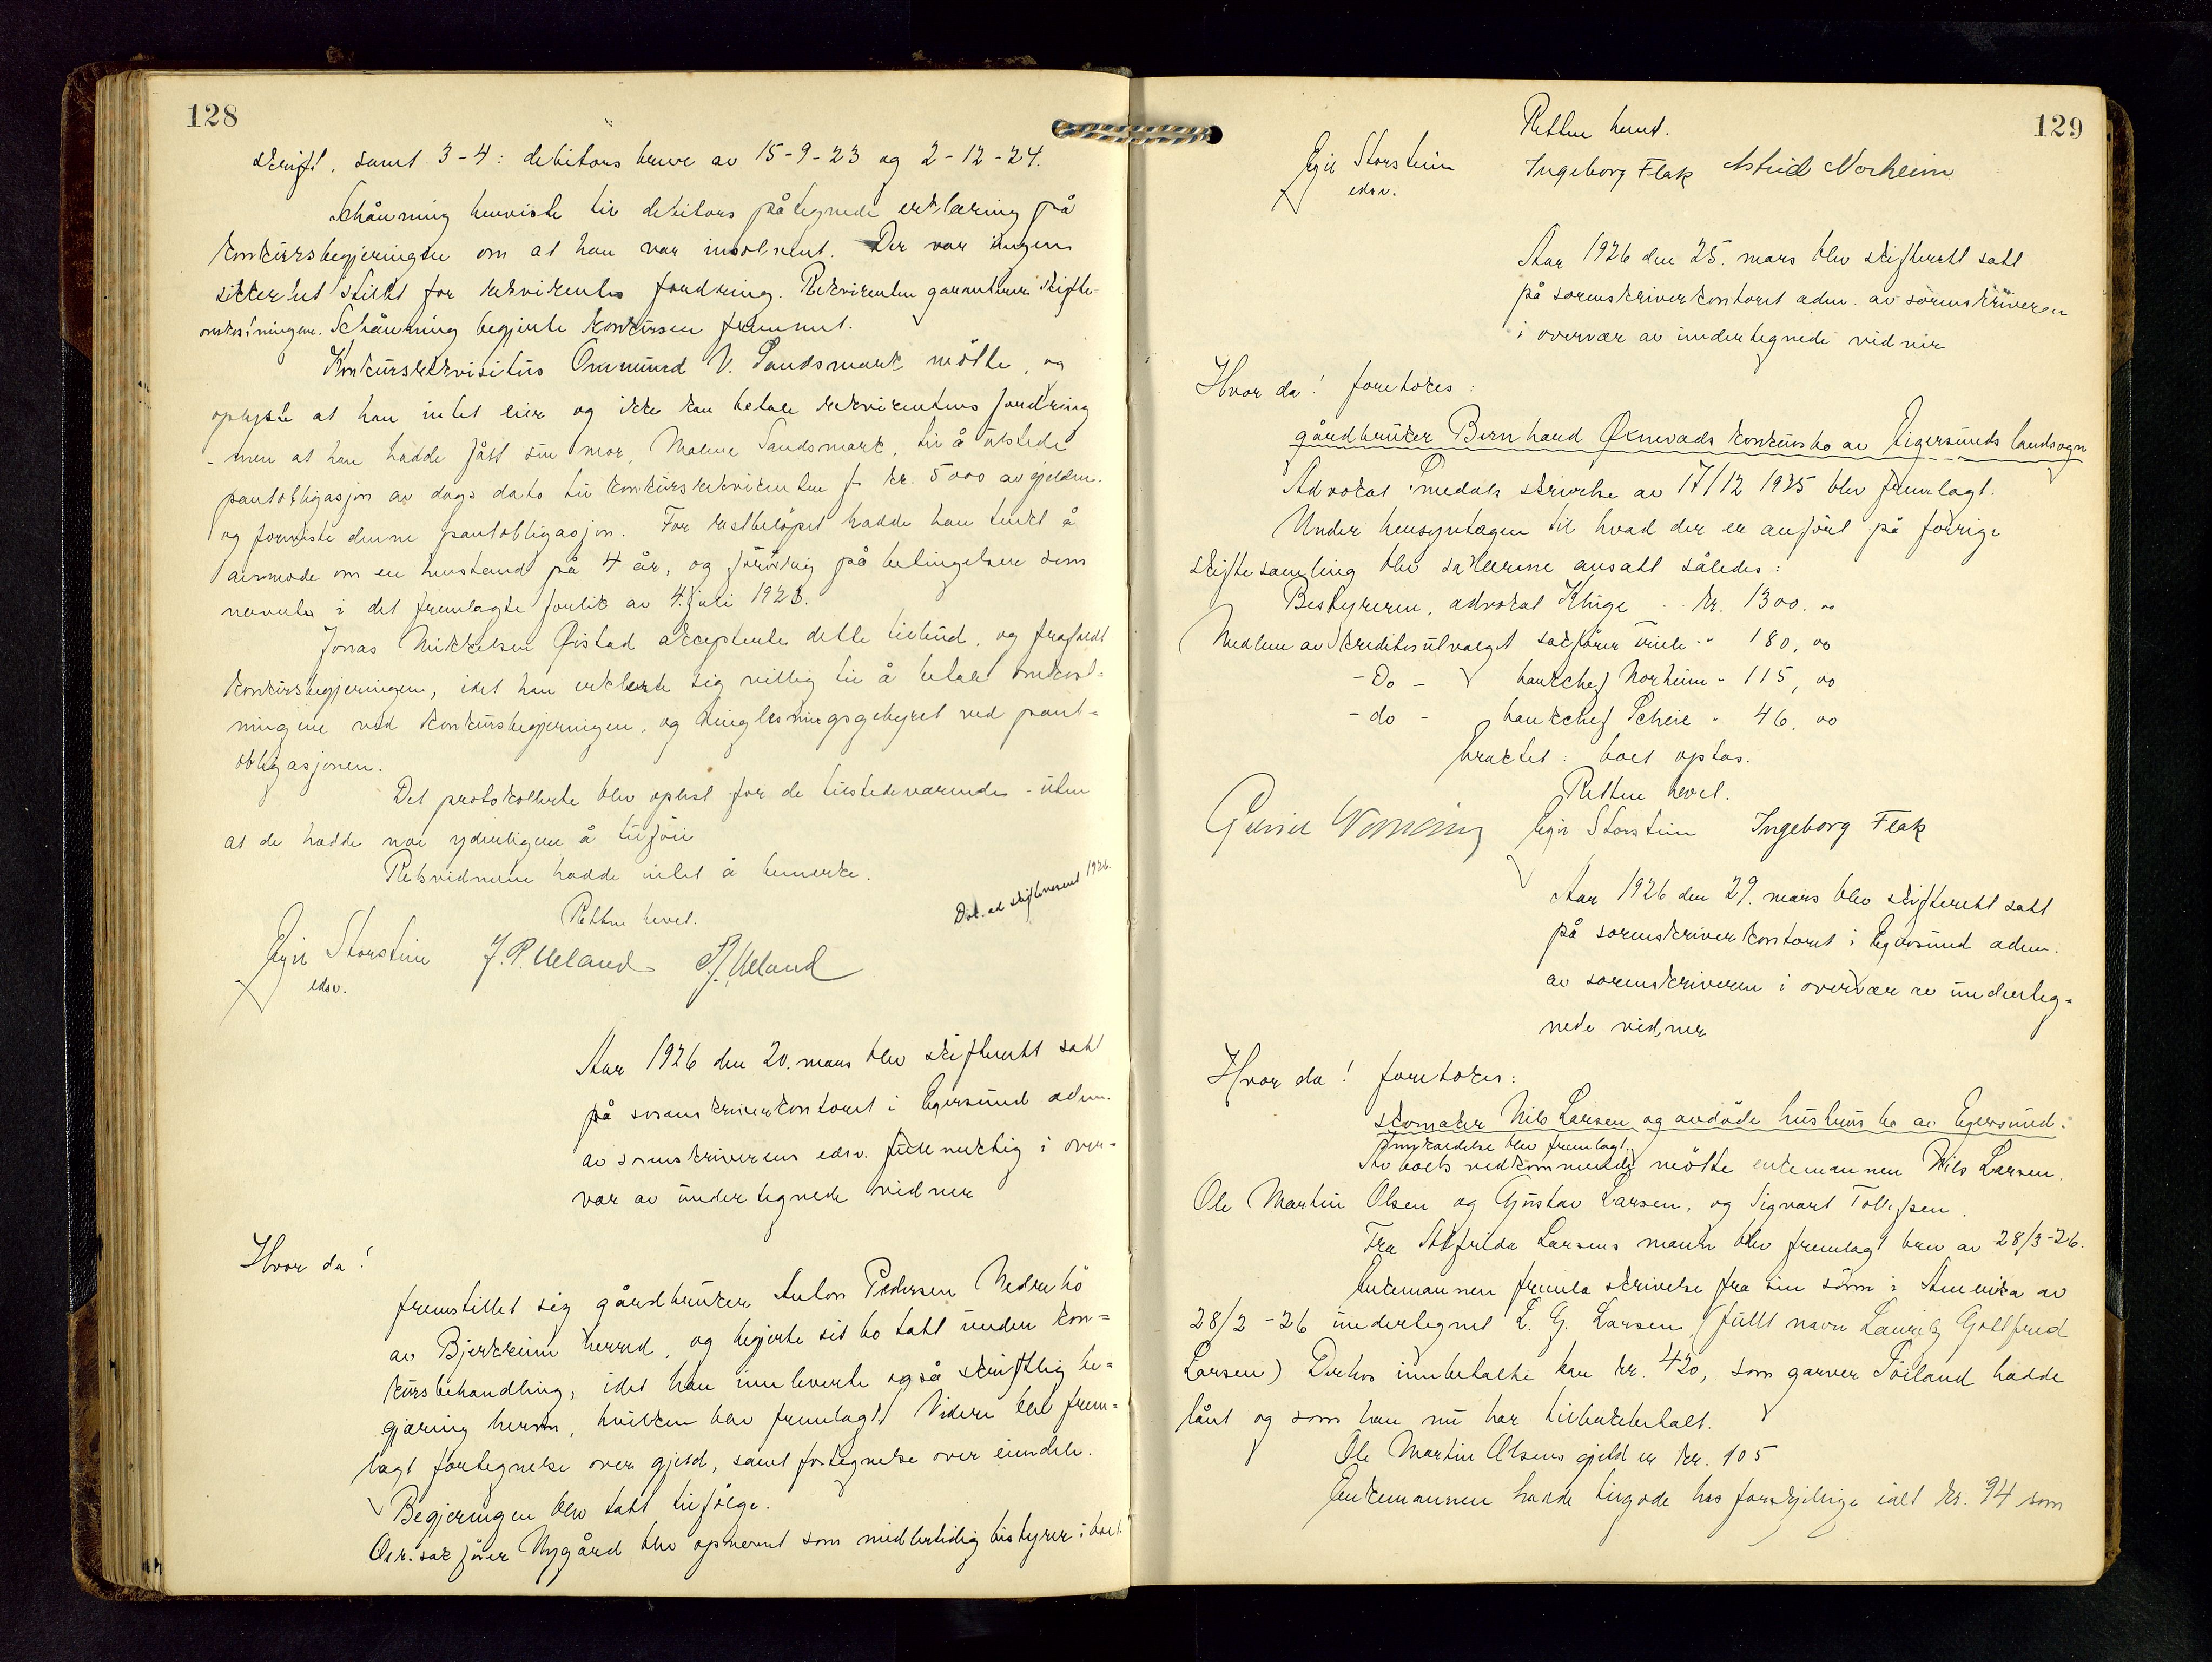 128
skrift, samt 3-4: debitors breve av 15-9-23 og 2-12-24.
Schånning henviste til debitors påtegnede erklæring på
konkursbegjeringen om at han var insolvent. Der var ingen
sikkerhet stillet for rekvirentens fordring. Rekvirenten garanterer skifte-
omkostningene. Schånning begjerte konkursen fremmet.
Konkursrekvisitus Ommund V. Sandsmark møtte, og
oplyste at han intet eier og ikke kan betale rekvirentens fordring
- men at han hadde fått sin mor, Malene Sandsmark, til å utstede
pantobligasjon av dags dato til konkursrekvirenten f. kr. 5000 av gjelden.
og foreviste denne pantobligasjon. For restbeløpet hadde han tenkt å
anmode om en henstand på 4 år, og forøvrig på betingelser som
nevnte i det fremlagte forlik av 4. juli 1923.
Jonas Mikkelsen Øistad accepterte dette tilbud, og frafaldt
konkursbegjeringen, idet han erklærte sig villig til å betale omkost-
ningene ved konkursbegjeringen, og tinglesningsgebyret ved pant-
obligasjonen.
Det protokollerte blev oplest for de tilstedeværende - uten
at de hadde noe yderligere å tilføie
Retsvidnene hadde intet å bemerke.
Retten hevet.
Dok. ad skiftevesenet 1926.
Egil Storstein J. P. Ueland P. J. Ueland
edsv.
Aar 1926 den 20. mars blev skifterett satt
på sorenskriverkontoret i Egersund adm.
av sorenskriverens edsv. fullmektig i over-
vær av undertegnede vidner
Hvor da!
fremstillet sig gårdbruker Anton Pedersen Nedrebø
av Bjerkreim herred, og begjerte sit bo tatt under kon-
kursbehandling, idet han innleverte også skriftlig be-
gjæring herom, hvilken blev fremlagt. Videre blev frem-
lagt fortegnelse over gjeld, samt fortegnelse over eiendele.
Begjeringen blev tatt tilfølge.
O.r.sakfører Nygård blev opnevnt som midlertidig bestyrer i boet
129
Retten hevet.
Egil Storstein Ingeborg Flak Astrid Norheim
edsv.
Aar 1926 den 25. mars blev skifterett satt
på sorenskriverkontoret adm. av sorenskriveren
i overvær av undertegnede vidner
Hvor da! foretokes:
gårdbruker Bernhard Øxnevads konkursbo av Eigersunds landsogn
Advokat Smedals skrivelse av 17/12 1925 blev fremlagt.
Under hensyntagen til hvad der er anført på forrige
skiftesamling blev salærene ansatt således:
Bestyreren, advokat Kluge .. kr. 1300. 00
Medlem av kreditorutvalget sakfører " 180, 00
- Do - bankchef Norheim " 115, 00
- do - bankchef Scheie " 46, 00
hvorefter: boet optas.
Retten hevet.
Egil Storstein Ingeborg Flak
Aar 1926 den 29. mars blev skifterett satt
på sorenskriverkontoret i Egersund adm.
av sorenskriveren i overvær av underteg-
nede vidner
Hvor da! foretokes:
skomaker Nils Larsen og avdøde hustrus bo av Egersund.
Innkaldelse blev fremlagt.
Av boets vedkommende møtte enkemannen Nils Larsen,
Ole Martin Olsen og Gustav Larsen, og Sigvart Tollefsen.
Fra Alfrida Larsens mann blev fremlagt brev av 28/3-26.
Enkemannen fremla skrivelse fra sin sønn i Amerika av
28/2-26 undertegnet L. G. Larsen (fullt navn Lauritz Gottfred
Larsen) Derhos innbetalte han kr. 420, som garver Tøiland hadde
lånt og som han nu har tilbakebetalt.
Ole Martin Olsens gjeld er kr. 105
Enkemannen hadde tilgode hos forskjellige ialt kr. 94 som